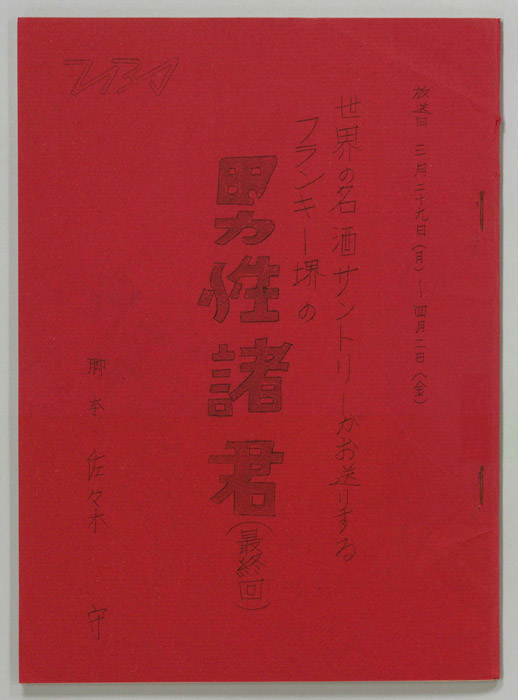 放送日 三月二十九日(月)〜四月二日(金)
世界の名酒サントリーがお送りする
フランキー堺の
男性諸君
(最終回)
脚本 佐々木 守
TBS